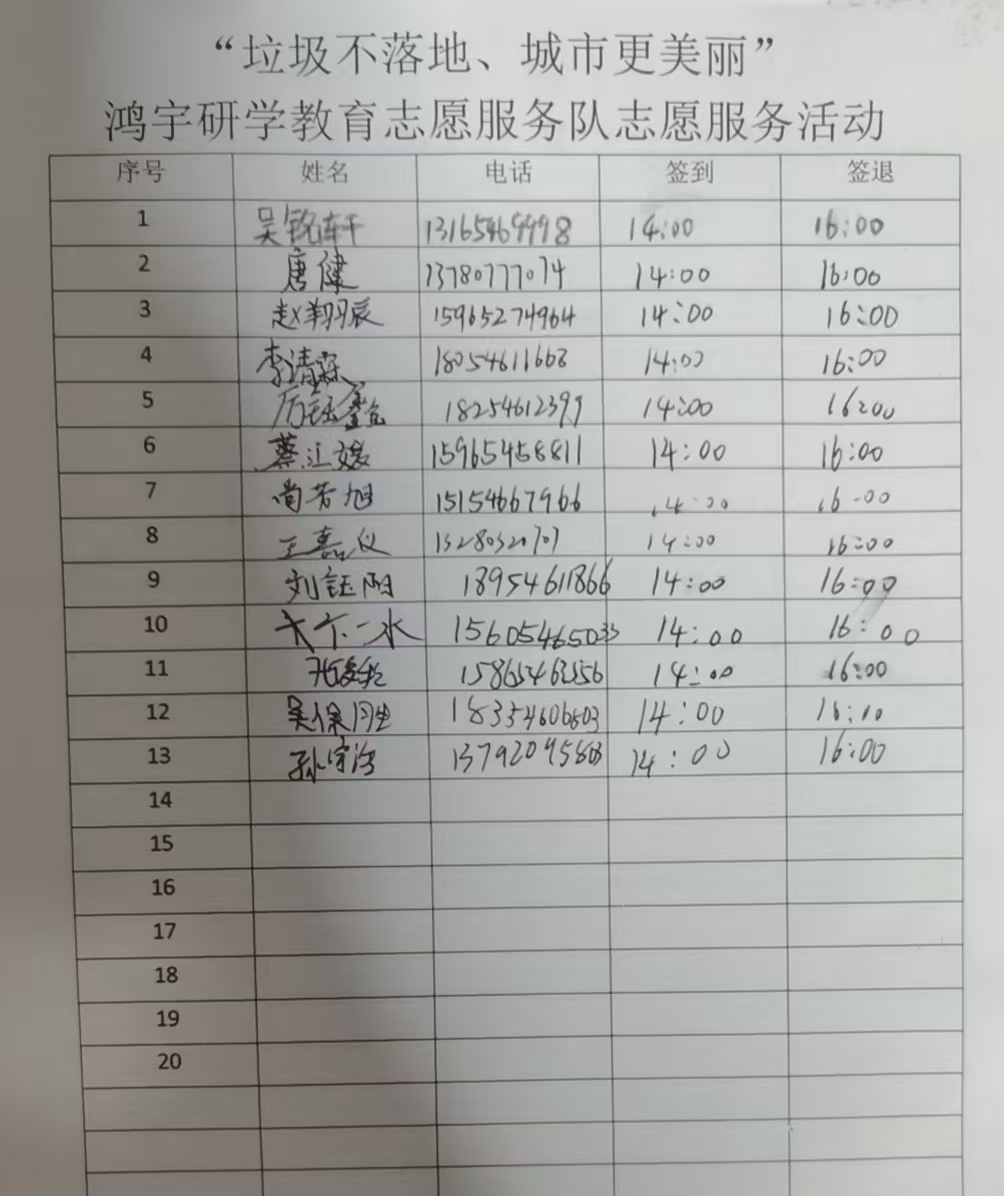 “垃圾不落地、城市更美丽”
鸿宇研学教育志愿服务队志愿服务活动
序号 姓名 电话 签到 签退
1 吴铭轩 13165469998 14:00 16:00
2 唐健 13780777074 14:00 16:00
3 赵翔辰 15965274964 14:00 16:00
4 李清霖 18054611668 14:00 16:00
5 14:00 16:00
6 蔡汇媛 15965458811 14:00 16:00
7 尚芳旭 15154667966 14:00 16:00
8 王嘉仪 14:00 16:00
9 刘钰阳 18954611866 14:00 16:00
10 卞一水 15605465033 14:00 16:00
11 14:00 16:00
12 14:00 16:10
13 14:00 16:00
14
15
16
17
18
19
20